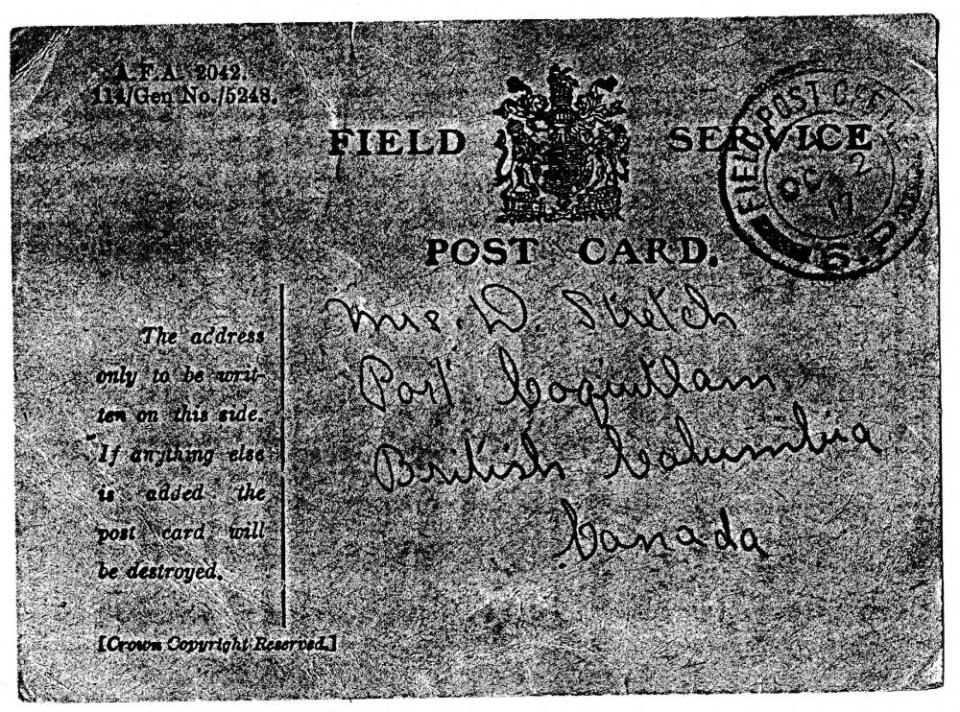 A.F.A. 2042.
114/Gen No./5248.
FIELD SERVICE
POST CARD.
FIELD POST OFFICE
OC 2
17
The address
only to be writ-
ten on this side.
If anything else
is added the
post card will
be destroyed.
[Crown Copyright Reserved.]
Mrs. D. Stretch
Port Coquitlam
British Columbia
Canada